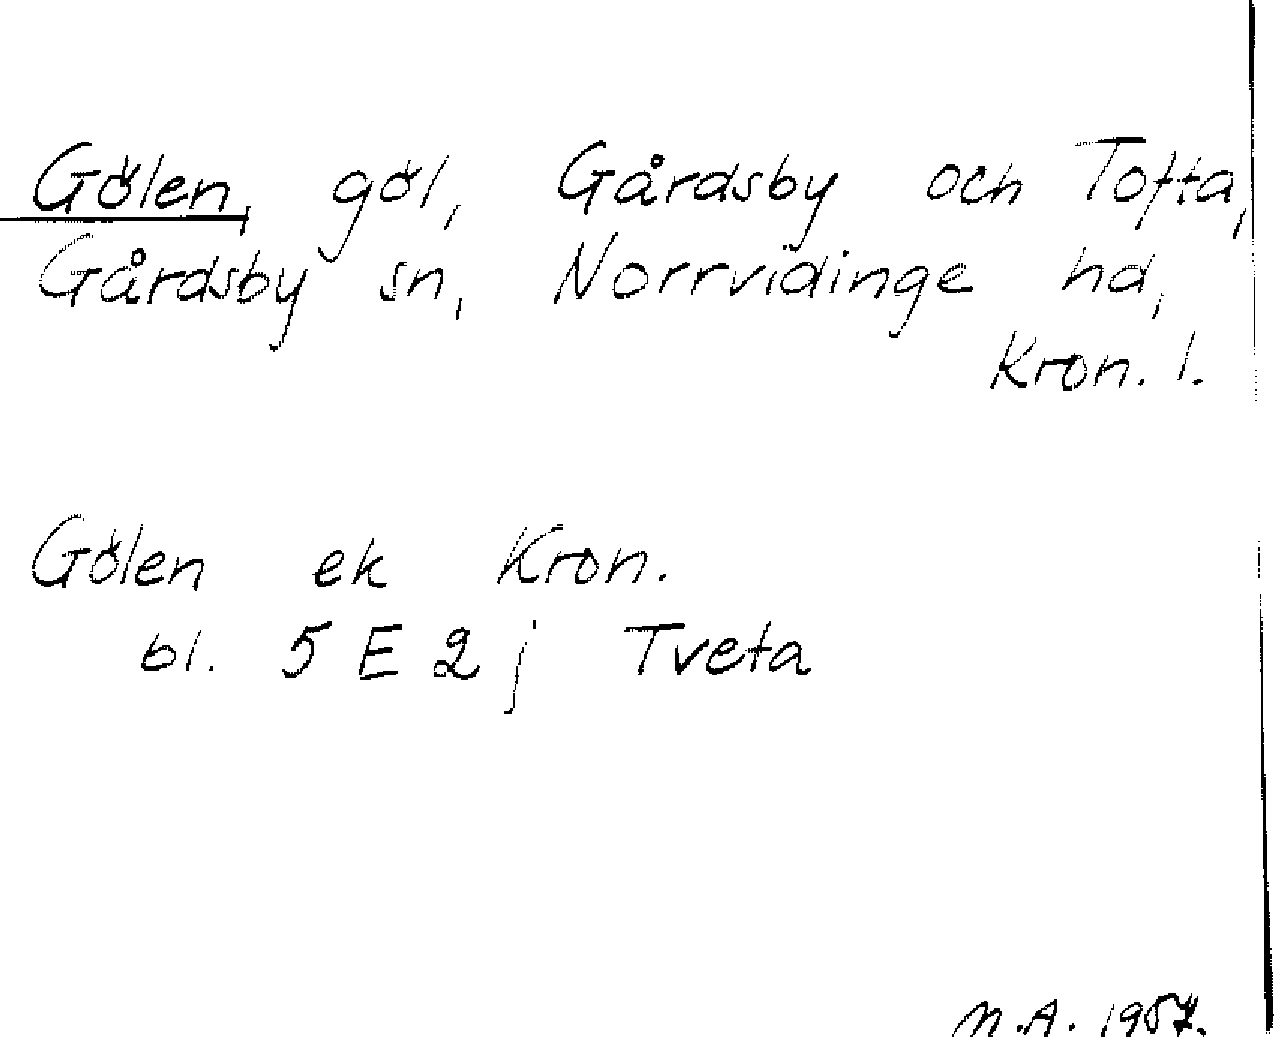 Gölen, göl, Gårdsby och Tofta,
Gårdsby sn, Norrvidinge hd,
Kron. l.
Gölen ek Kron.
bl. 5 E 2 j Tveta
N.A. 1957.